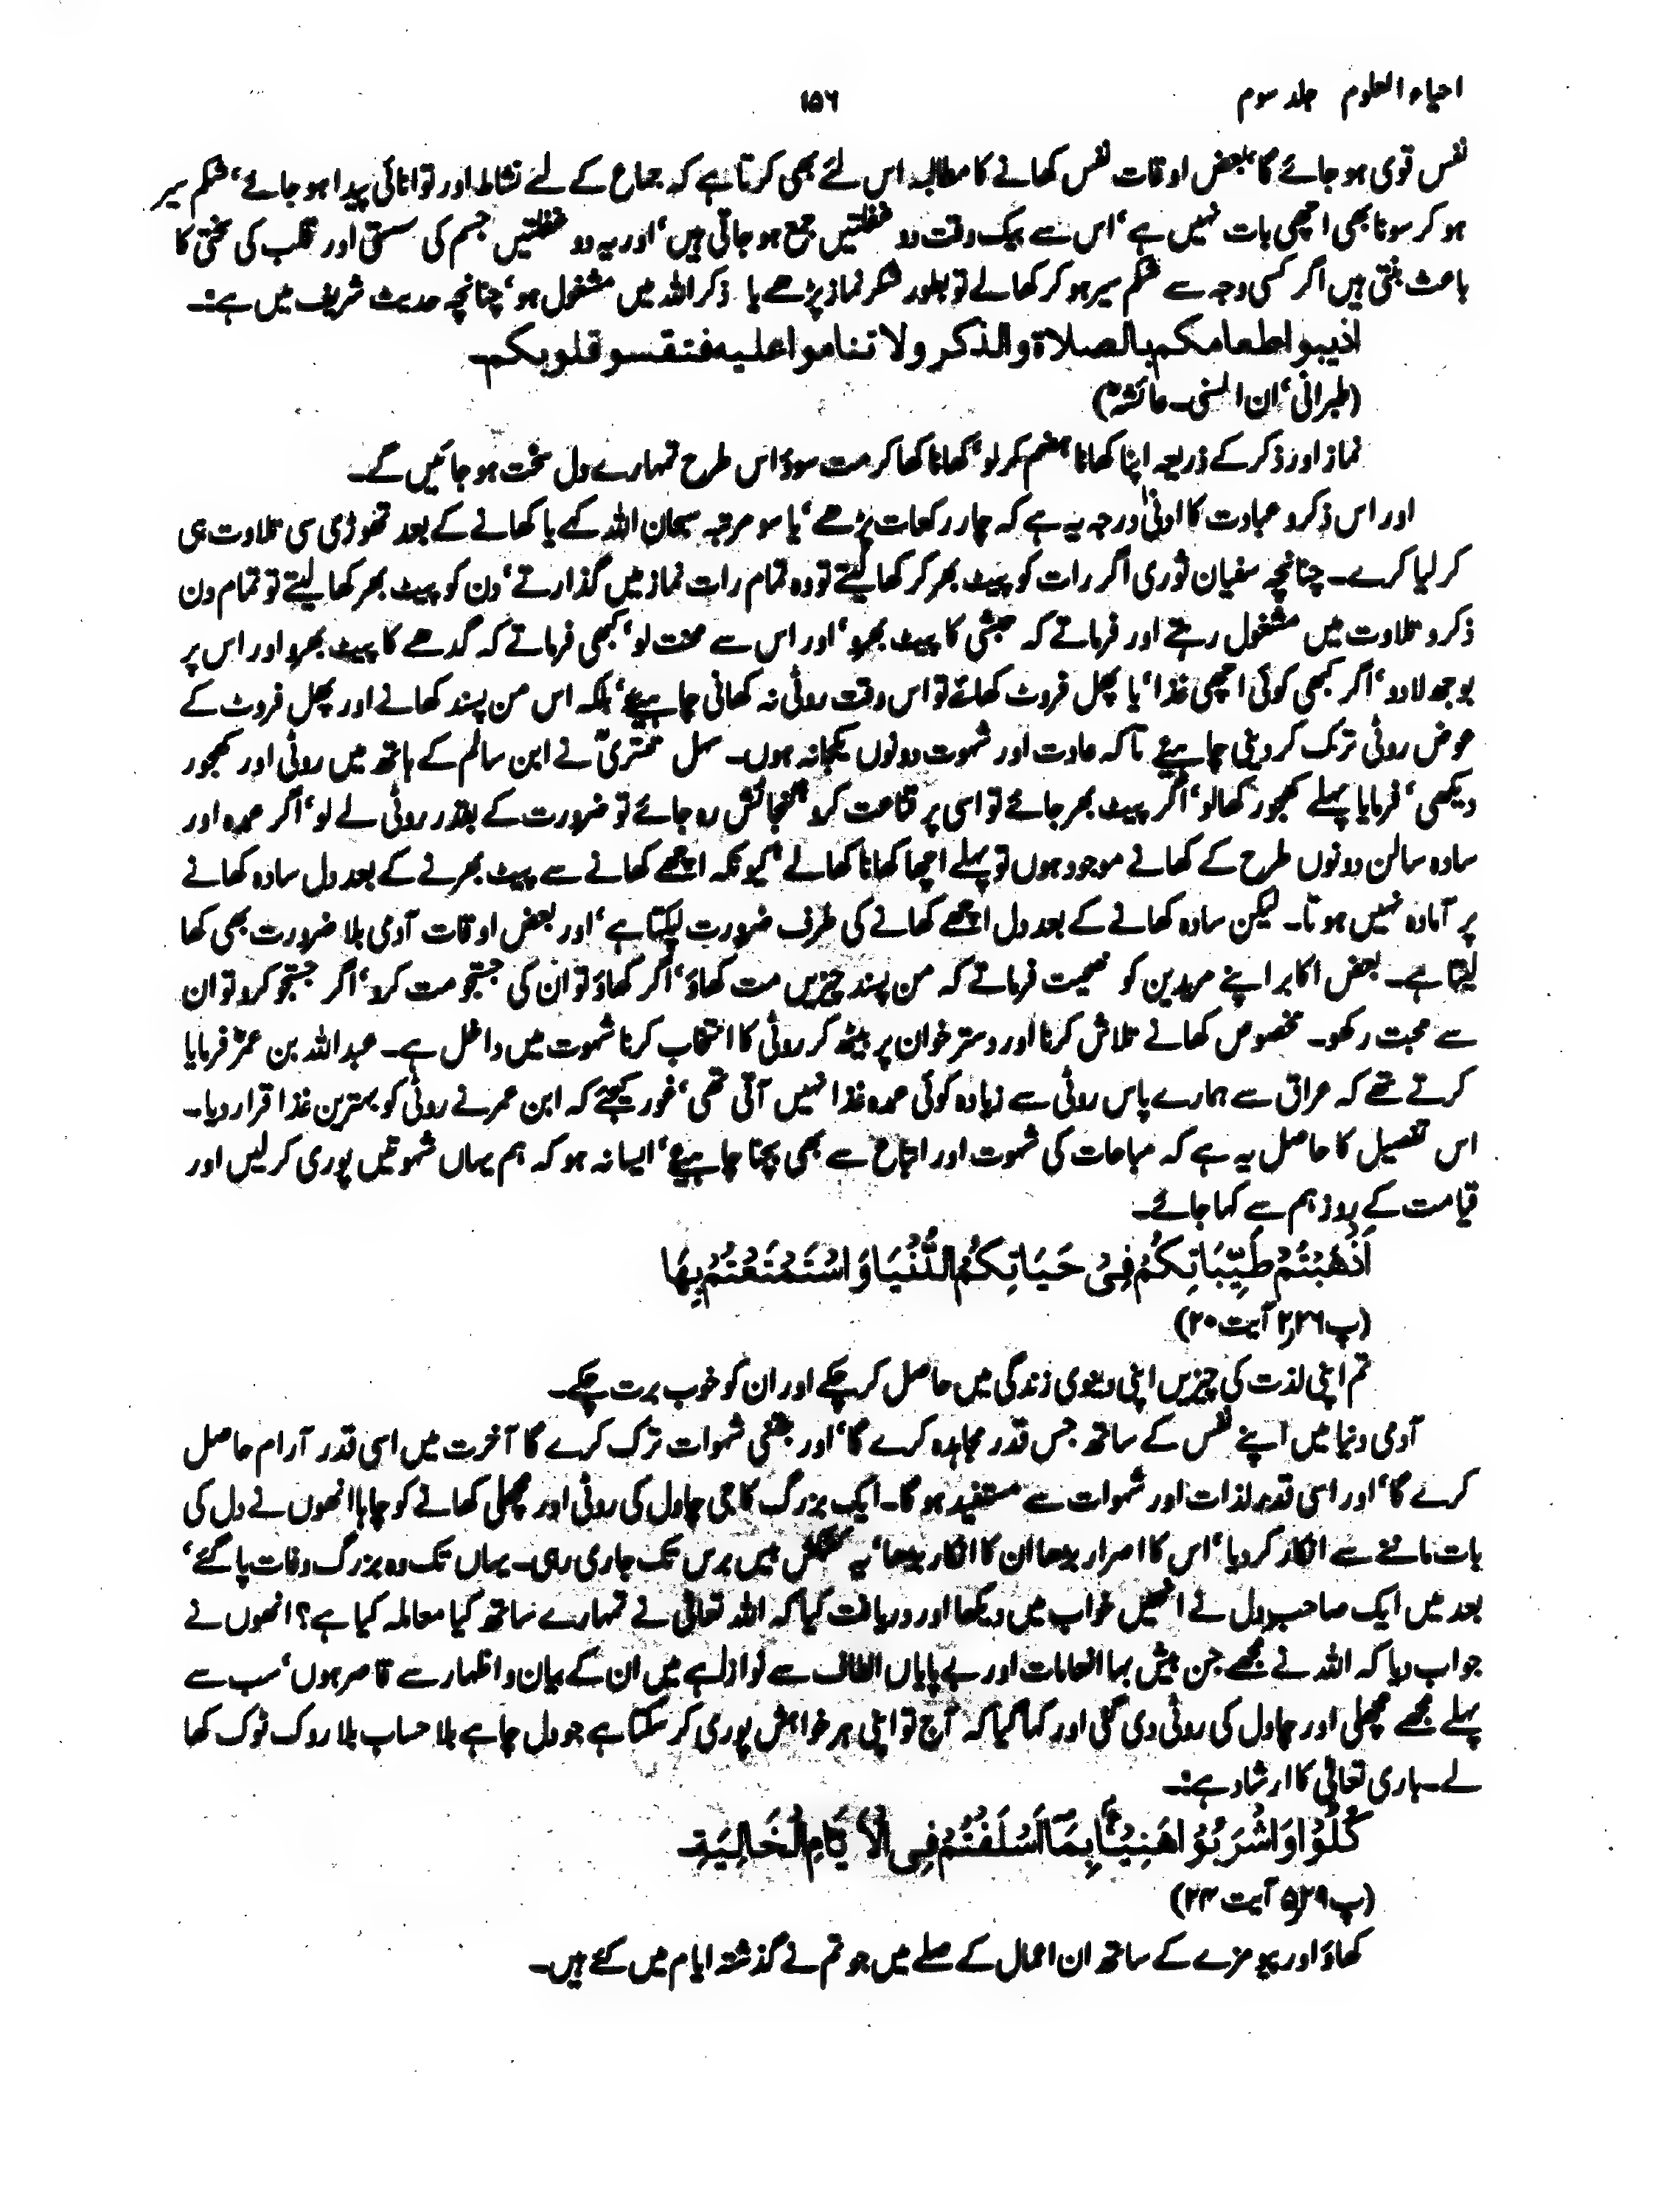 احیاء العلوم جلد سوم
۱۵۶
نفس قوی ہو جائے گا، بعض اوقات نفس کھانے کا مطالبہ اس لئے بھی کرتا ہے کہ جماع کے لئے نشاط اور توانائی پیدا ہو جائے، شکم سیر
ہو کر سونا بھی اچھی بات نہیں ہے، اس سے بیک وقت دو غفلتیں جمع ہو جاتی ہیں، اور یہ دو غفلتیں جسم کی سستی اور قلب کی سختی کا
باعث بنتی ہیں اگر کسی وجہ سے شکم سیر ہو کر کھالے تو بطور شکر نماز پڑھے یا ذکر اللہ میں مشغول ہو، چنانچہ حدیث شریف میں ہے:۔
اذیبوا طعامکم بالصلاة والذکر ولا تناموا علیہ فتقسو قلوبکم۔
(طبرانی، ابن السنی۔ عائشہؓ)
نماز اور ذکر کے ذریعہ اپنا کھانا ہضم کر لو، کھانا کھا کر مت سوؤ اس طرح تمہارے دل سخت ہو جائیں گے۔
اور اس ذکر و عبادت کا ادنیٰ درجہ یہ ہے کہ چار رکعات پڑھے، یا سو مرتبہ سبحان اللہ کہے یا کھانے کے بعد تھوڑی سی تلاوت ہی
کر لیا کرے۔ چنانچہ سفیان ثوری اگر رات کو پیٹ بھر کر کھا لیتے تو وہ تمام رات نماز میں گذارتے، دن کو پیٹ بھر کھا لیتے تو تمام دن
ذکر و تلاوت میں مشغول رہتے اور فرماتے کہ حبشی کا پیٹ بھرو، اور اس سے محنت لو، کبھی فرماتے کہ گدھے کا پیٹ بھرو اور اس پر
بوجھ لادو، اگر کبھی کوئی اچھی غذا، یا پھل فروٹ کھائے تو اس وقت روٹی نہ کھانی چاہیئے، بلکہ اس من پسند کھانے اور پھل فروٹ کے
عوض روٹی ترک کر دینی چاہیئے تاکہ عادت اور شہوت دونوں یکجا نہ ہوں۔ سہل تستریؒ نے ابن سالم کے ہاتھ میں روٹی اور کھجور
دیکھی، فرمایا پہلے کھجور کھالو، اگر پیٹ بھر جائے تو اسی پر قناعت کرو، گنجائش رہ جائے تو ضرورت کے بقدر روٹی لے لو، اگر عمدہ اور
سادہ سالن دونوں طرح کے کھانے موجود ہوں تو پہلے اچھا کھانا کھالے، کیونکہ اچھے کھانے سے پیٹ بھرنے کے بعد دل سادہ کھانے
پر آمادہ نہیں ہوتا۔ لیکن سادہ کھانے کے بعد دل اچھے کھانے کی طرف ضرورت لپکتا ہے، اور بعض اوقات آدمی بلا ضرورت بھی کھا
لیتا ہے۔ بعض اکابر اپنے مریدین کو نصیحت فرماتے کہ من پسند چیزیں مت کھاؤ، اگر کھاؤ تو ان کی جستجو مت کرو، اگر جستجو کرو تو ان
سے محبت رکھو۔ مخصوص کھانے تلاش کرنا اور دستر خوان پر بیٹھ کر روٹی کا انتخاب کرنا شہوت میں داخل ہے۔ عبداللہ بن عمرؓ فرمایا
کرتے تھے کہ عراق سے ہمارے پاس روٹی سے زیادہ کوئی عمدہ غذا نہیں آتی تھی، غور کیجئے کہ ابن عمر نے روٹی کو بہترین غذا قرار دیا۔
اس تفصیل کا حاصل یہ ہے کہ مباحات کی شہوت اور اتباع سے بھی بچنا چاہیئے، ایسا نہ ہو کہ ہم یہاں شہوتیں پوری کرلیں اور
قیامت کے روز ہم سے کہا جائے۔
اَذْهَبْتُمْ طَيِّبَاتِكُمْ فِیْ حَيَاتِكُمُ الدُّنْيَا وَاسْتَمْتَعْتُمْ بِهَا
(پ۲۶ر۲ آیت ۲۰)
تم اپنی لذت کی چیزیں اپنی دینوی زندگی میں حاصل کر چکے اور ان کو خوب برت چکے۔
آدمی دنیا میں اپنے نفس کے ساتھ جس قدر مجاہدہ کرے گا، اور جتنی شہوات ترک کرے گا آخرت میں اسی قدر آرام حاصل
کرے گا، اور اسی قدر لذات اور شہوات سے مستفید ہو گا۔ ایک بزرگ کا جی چاول کی روٹی اور مچھلی کھانے کو چاہا انھوں نے دل کی
بات ماننے سے انکار کر دیا، اس کا اصرار بڑھا ان کا انکار بڑھا، یہ کشمکش بیس برس تک جاری رہی۔ یہاں تک وہ بزرگ وفات پا گئے،
بعد میں ایک صاحب دل نے انھیں خواب میں دیکھا اور دریافت کیا کہ اللہ تعالیٰ نے تمہارے ساتھ کیا معاملہ کیا ہے؟ انھوں نے
جواب دیا کہ اللہ نے مجھے جن بیش بہا انعامات اور بے پایاں الطاف سے نوازا ہے میں ان کے بیان و اظہار سے قاصر ہوں، سب سے
پہلے مجھے مچھلی اور چاول کی روٹی دی گئی اور کہا گیا کہ آج تو اپنی ہر خواہش پوری کر سکتا ہے جو دل چاہے بلا حساب بلا روک ٹوک کھا
لے۔ باری تعالیٰ کا ارشاد ہے:۔
كُلُوْا وَاشْرَبُوْا هَنِيْئًا بِمَا اَسْلَفْتُمْ فِی الْاَيَّامِ الْخَالِيَةِ۔
(پ۲۹ر۵ آیت ۲۴)
کھاؤ اور پیو مزے کے ساتھ ان اعمال کے صلے میں جو تم نے گذشتہ ایام میں کئے ہیں۔